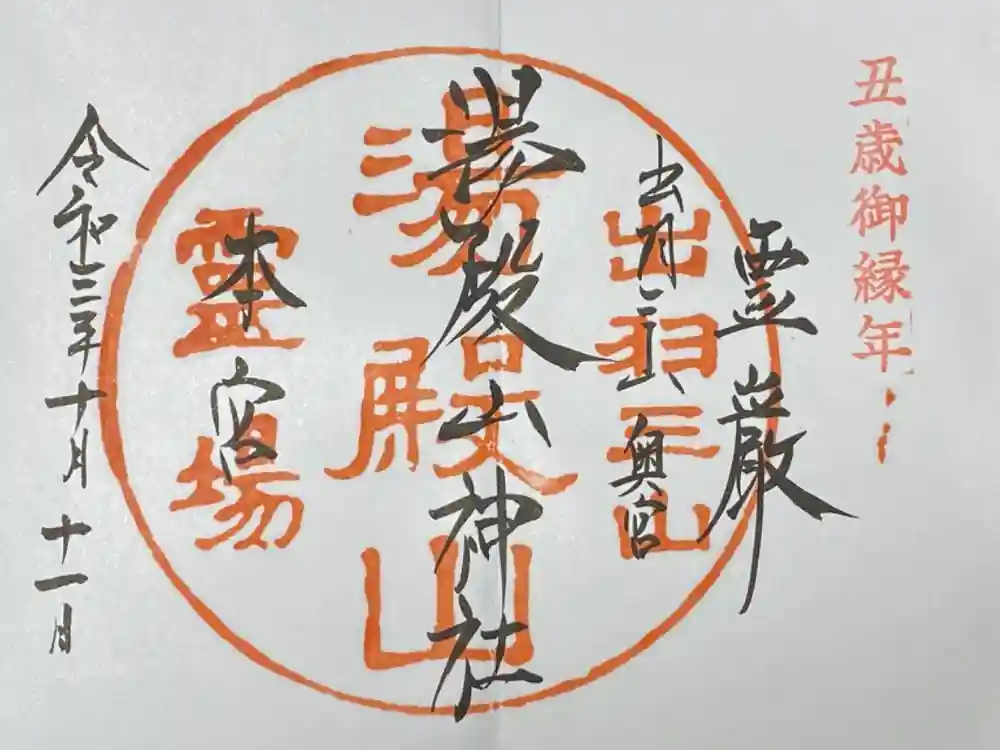 丑歳御縁年
霊巌
出羽三山奥宮
出羽三山
湯殿山神社
湯殿山
本宮
靈場
令和三年十月十一日